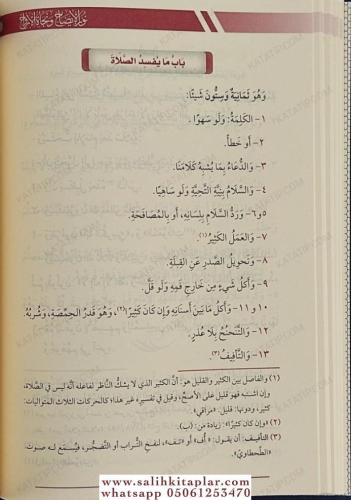 نور الإيضاح ونجاة الأرواح
بَابُ مَا يُفْسِدُ الصَّلَاةَ
وَهُوَ ثَمَانِيَةٌ وَسِتُّونَ شَيْئًا:
١- الكَلِمَةُ: وَلَو سَهْوًا.
٢- أَو خَطَأً.
٣- وَالدُّعَاءُ بِمَا يُشْبِهُ كَلَامَنَا.
٤- وَالسَّلَامُ بِنِيَّةِ التَّحِيَّةِ وَلَو سَاهِيًا.
٥ و٦- وَرَدُّ السَّلَامِ بِلِسَانِهِ، أَو بِالمُصَافَحَةِ.
٧- وَالعَمَلُ الكَثِيرُ(١).
٨- وَتَحْوِيلُ الصَّدْرِ عَنِ القِبْلَةِ.
٩- وَأَكْلُ شَيْءٍ مِنْ خَارِجِ فَمِهِ وَلَو قَلَّ.
١٠ و١١- وَأَكْلُ مَا بَيْنَ أَسْنَانِهِ وَإِن كَانَ كَثِيرًا(٢)، وَهُوَ قَدْرُ الحِمَّصَةِ، وَشُرْبُهُ
١٢- وَالتَّنَحْنُحُ بِلَا عُذْرٍ.
١٣- وَالتَّأْفِيفُ(٣).
(١) والفاصل بين الكثير والقليل هو: أنَّ الكثير الذي لا يشكُّ الناظر لفاعله أنَّه ليس في الصَّلاة،
وإن اشتبه فهو قليل على الأصحِّ، وقيل في تفسيره غير هذا كالحركات الثلاث المتواليات:
كثير، ودونها: قليل. «مراقي».
(٢) «وإن كان كثيرًا»: زيادة من: (ب).
(٣) التأفيف: أن يقول: «أُف» أو «تف»، لنفخ التُّراب أو التضجُّر، فيُسمَع له صوت:
«الطحطاوي».
www.salihkitaplar.com
whatsapp 05061253470